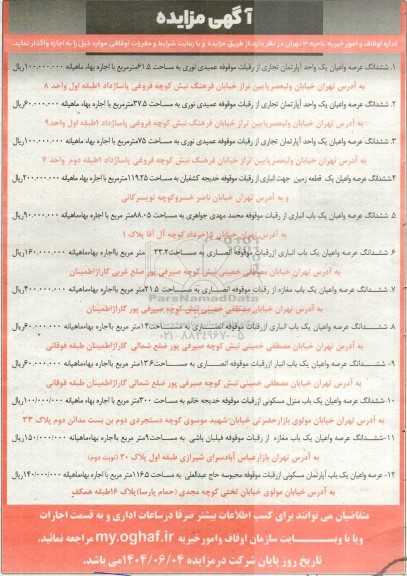 آگهی مزایده
اداره اوقاف و امور خیریه ناحیه ۳ تهران در نظر دارد، از طریق مزایده و با رعایت شرایط و مقررات اوقافی موارد ذیل را به اجاره واگذار نماید.
۱. ششدانگ عرصه واعیان یک واحد آپارتمان تجاری از رقبات موقوفه عمیدی نوری به مساحت ۶۱.۵مترمربع با اجاره بهاء ماهیانه ۱۰۰,۰۰۰,۰۰۰ریال
به آدرس تهران خیابان ولیعصرپایین تراز خیابان فرهنگ نبش کوچه فروغی پاساژداد ۱طبقه اول واحد ۸
۲. ششدانگ عرصه واعیان یک واحد آپارتمان تجاری از رقبات موقوفه عمیدی نوری به مساحت ۳۷.۵مترمربع با اجاره بهاء ماهیانه ۶۰,۰۰۰,۰۰۰ریال
به آدرس تهران خیابان ولیعصرپایین تراز خیابان فرهنگ نبش کوچه فروغی پاساژداد ۱طبقه اول واحد۹
۳. ششدانگ عرصه واعیان یک واحد آپارتمان تجاری از رقبات موقوفه عمیدی نوری به مساحت ۷۵مترمربع با اجاره بهاء ماهیانه ۱۰۰,۰۰۰,۰۰۰ریال
به آدرس تهران خیابان ولیعصرپایین تراز خیابان فرهنگ نبش کوچه فروغی پاساژداد ۱طبقه دوم واحد ۷
۴ششدانگ عرصه واعیان یک قطعه زمین جهت انباری از رقبات موقوفه خدیجه کشفیان به مساحت ۱۱۹.۲۵مترمربع با اجاره بهاء ماهیانه ۲۰۰,۰۰۰,۰۰۰ریال
و به آدرس تهران خیابان ناصر خسروکوچه تویسرکانی
۵. ششدانگ عرصه واعیان یک باب انباری از رقبات موقوفه محمد مهدی جواهری به مساحت ۸۸.۰۵مترمربع با اجاره بهاءماهیانه ۹۰,۰۰۰,۰۰۰ریال
به آدرس تهران خیابان ۱۵خرداد کوچه آل آقا پلاک ۱
۶. ششدانگ عرصه واعیان یک باب انباری ازرقبات موقوفه انصاری به مساحت ۳۳.۲ متر مربع بااجاره بهاءماهیانه ۱۶۰,۰۰۰,۰۰۰ریال
به آدرس تهران خیابان مصطفی خمینی نبش کوچه صیرفی پور ضلع غربی گاراژاطمینان
۷. ششدانگ عرصه واعیان یک باب مغازه از رقبات موقوفه انصاری به مساحت ۲۱.۵ متر مربع بااجاره بهاءماهیانه ۴۰۰,۰۰۰,۰۰۰ریال
به آدرس تهران خیابان مصطفی خمینی نبش کوچه صیرفی پور گاراژاطمینان
۸- ششدانگ عرصه واعیان یک باب انباری ازرقبات موقوفه انصاری به مساحت ۱۲متر مربع بااجاره بهاءماهیانه ۶۰,۰۰۰,۰۰۰ریال
به آدرس تهران خیابان مصطفی خمینی نبش کوچه صیرفی پور ضلع شمالی گاراژاطمینان طبقه فوقانی
۹- ششدانگ عرصه واعیان یک باب انبار ازرقبات موقوفه انصاری به مساحت ۱۳.۶متر مربع بااجاره بهاءماهیانه ۶۰,۰۰۰,۰۰۰ریال
به آدرس تهران خیابان مصطفی خمینی نبش کوچه صیرفی پور ضلع شمالی گاراژاطمینان طبقه فوقانی
۱۰-ششدانگ عرصه واعیان یک باب منزل مسکونی ازرقبات موقوفه خدیجه خانم به مساحت ۳۰۰متر مربع با اجاره بهاءماهیانه ۱۰۰/۰۰۰/۰۰۰ریال
به آدرس تهران خیابان مولوی بازارحضرتی خیابان شهید موسوی کوچه دستجردی دوم بن بست مدائن دوم پلاک ۳۳
۱۱-ششدانگ عرصه واعیان یک باب مغازه از رقبات موقوفه فیلبان باشی به مساحت ۹متر مربع بااجاره بهاءماهیانه ۱۵۰/۰۰۰/۰۰۰ریال
به آدرس تهران بازارعباس آبادسرای شیرازی طبقه اول پلاک ۳۰ (نوبت دوم)
۱۲- ششدانگ عرصه واعیان یک باب آپارتمان مسکونی ازرقبات موقوفه محبوسه حاج عبدالعلی به مساحت ۱۱۶.۵ متر مربع بااجاره بهاءماهیانه ۱۴۰/۰۰۰/۰۰۰ریال
به آدرس خیابان مولوی خیابان تختی کوچه مجدی (حمام پارسا) پلاک ۱۶طبقه همکف
متقاضیان می توانند برای کسب اطلاعات بیشتر صرفا در ساعات اداری و به قسمت اجارات
ویا با وبسایت سازمان اوقاف وامورخیریه my.oghaf.ir مراجعه نمائید.
تاریخ روز پایان شرکت درمزایده ۱۴۰۴/۰۶/۰۴می باشد.
ParsNamadData
۰۲۱-۸۸۳۴۹۶۷۰-۵